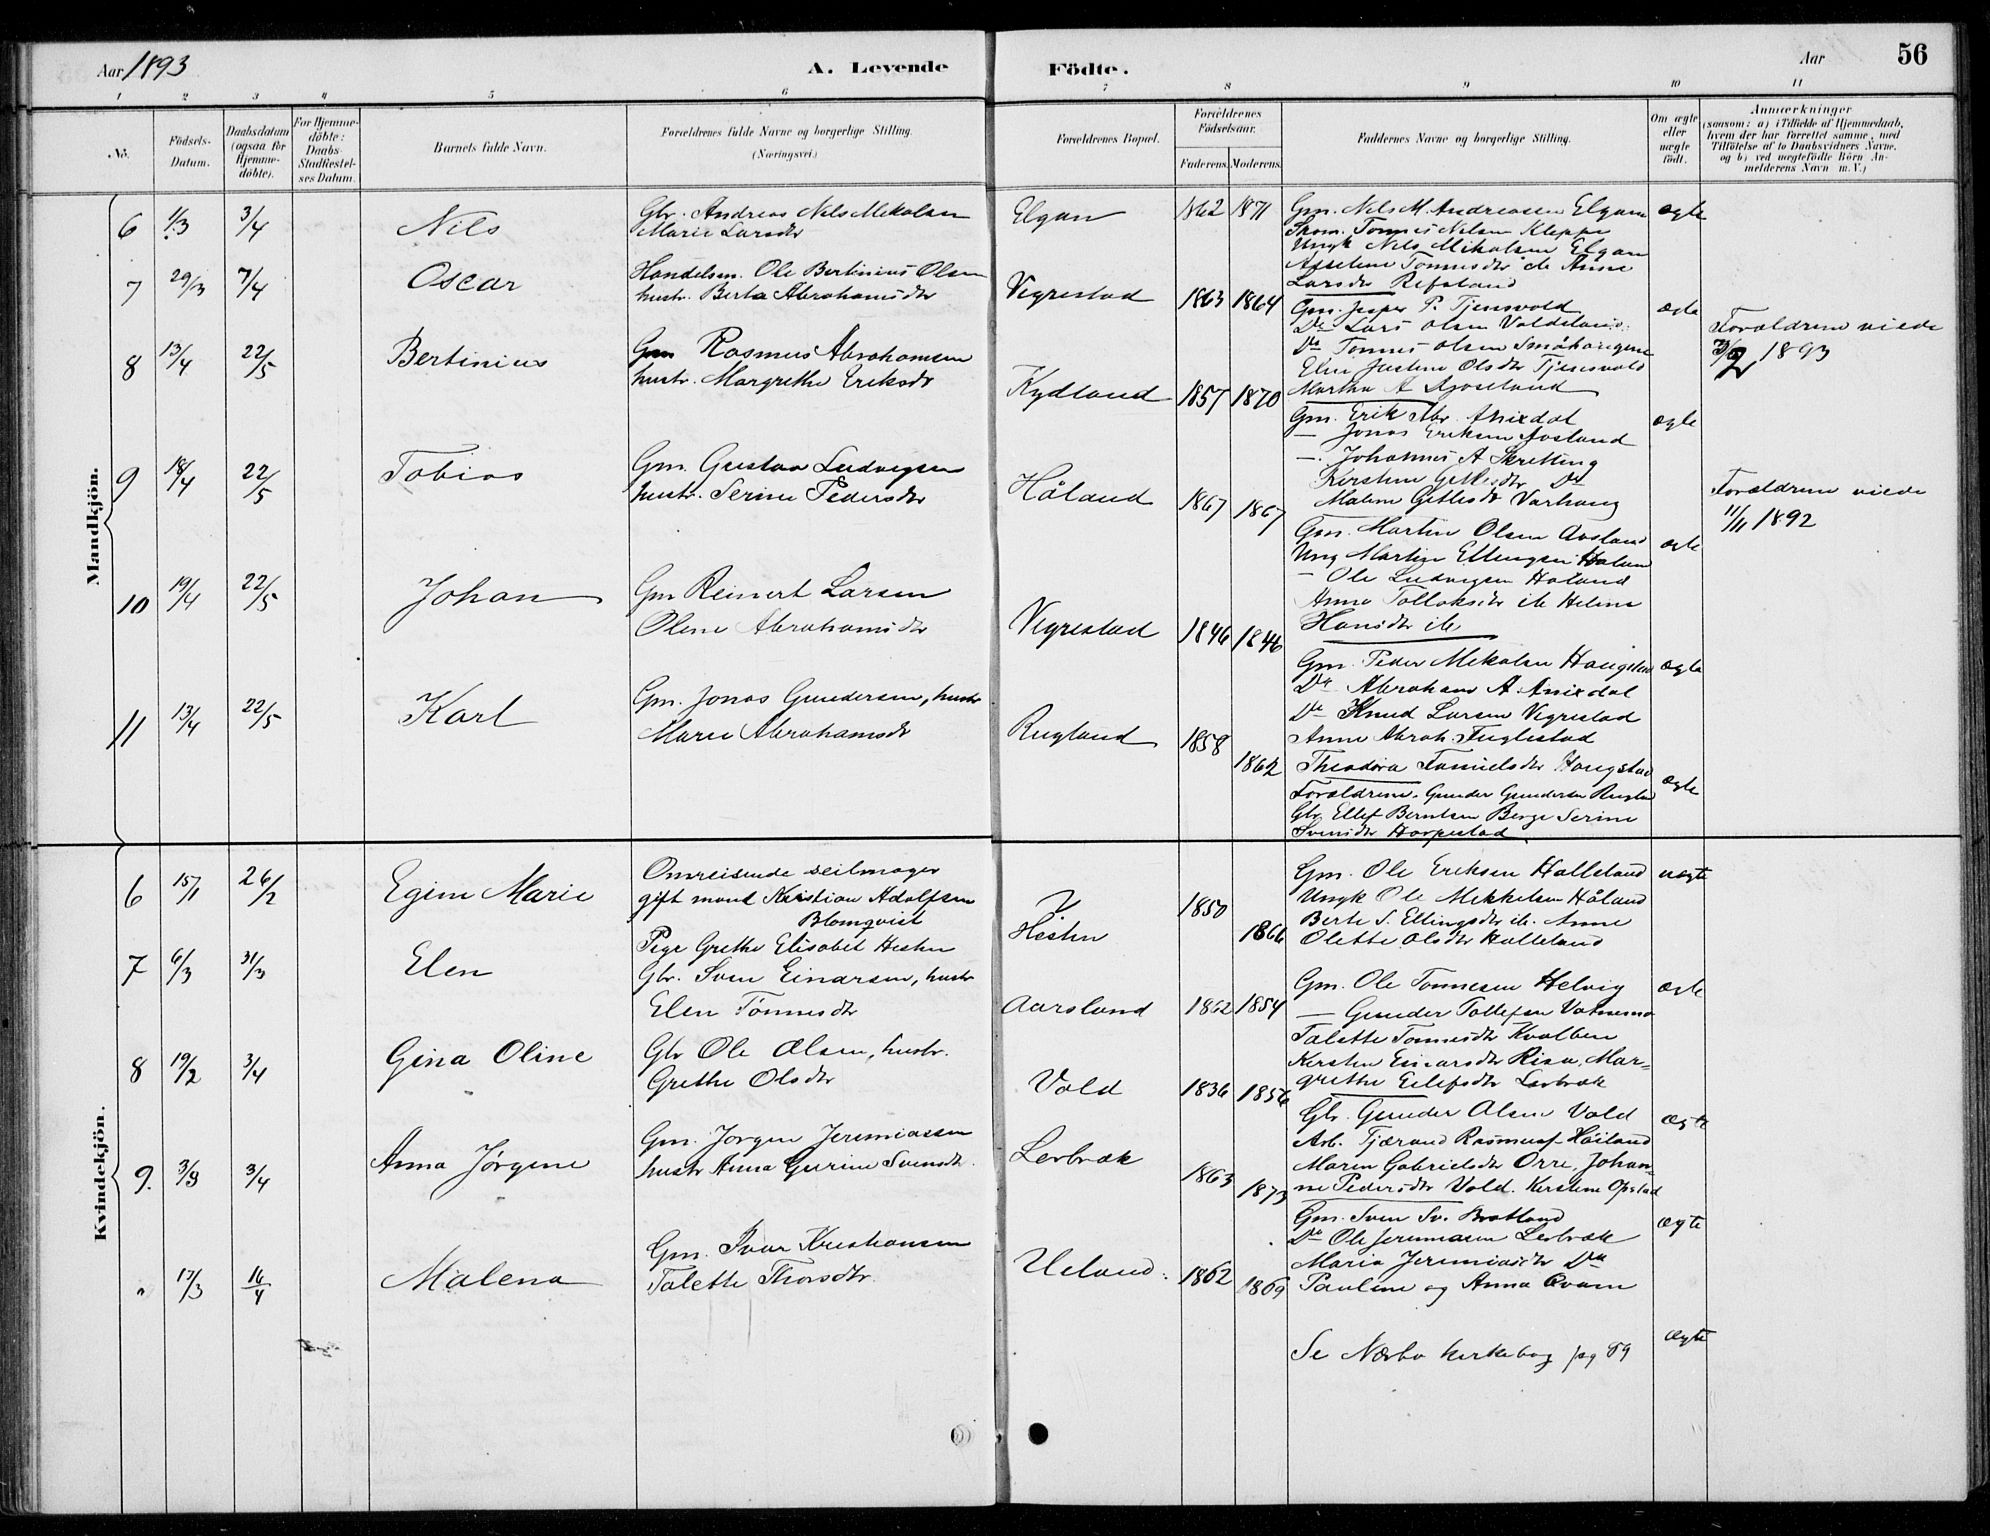 Aar 1893
A. Levende
Födte.
Aar
56
1 2 3 4 5 6 7 8 9 10 11
No.
Födsels-Datum.
Daabsdatum (ogsaa for Hjemme-döbte).
For Hjemme-döbte: Daabs-Stadfæstel-ses Datum.
Barnets fulde Navn.
Forældrenes fulde Navne og borgerlige Stilling. (Næringsvei.)
Forældrenes Bopæl.
Forældrenes Födselsaar.
Faderens. Moderens.
Faddernes Navne og borgerlige Stilling.
Om ægte eller uægte födt.
Anmærkninger
(saasom: a) i Tilfælde af Hjemmedaab,
hvem der har forrettet samme, med
Tilföielse af to Daabsvidners Navne.
og b) ved uægtefödte Börn An-
melderens Navn m. V.)
Mandkjön.
6 1/3 3/4 Nils
Gbr. Andreas Nils Mikalsen
Marie Larsdtr
Elgan 1862 1871
Gm. Nils M. Andreassen Elgan
Tønnes Nilsen Kleppe
Ungk Nils Mikalsen Elgan
Tønnesdtr ib Anne
Larsdtr Refsland
ægte
7 29/3 7/4 Oscar
Handelsm. Ole Bertinius Olsen
hustr. Berta Abrahamsdtr
Vigrestad 1863 1864
Gm. Jesper P. Tjensvold
Do Lars Olsen
Do Tønnes Olsen
Elen Justine Olsdtr Tjensvold
Martha A
ægte
Forældrene viede
1893
8 13/4 22/5 Bertinius
Gm Rasmus Abrahamsen
hustr. Margrethe Eriksdtr
Kydland 1857 1870
Gm. Erik Abr. Anixdal
— Jonas Eriksen Avsland
— Johannes A Skretting
Kirstine Gitlesdtr Do
Malene Gitlesdtr Varhaug
ægte
9 18/4 22/5 Tobias
Gm. Gustav Ludvigsen
hustr. Serine Pedersdtr
Håland 1867 1867
Gm. Martin Olsen Avsland
Ung Martin Ellingsen
— Ole Ludvigsen Håland
Anna Tollaksdtr ib Helene
Hansdtr ib
ægte
Forældrene viede
11/11 1892
10 19/4 22/5 Johan
Gm Reinert Larsen
Olene Abrahamsdtr
Vigrestad 1846 1846
Gm. Peder Mikalsen Haugstad
Do Abraham A. Anixdal
Do Knud Larsen Vigrestad
Anne Abrah. Fuglestad
Theodora Haugstad
ægte
11 13/4 22/5 Karl
Gm. Jonas Gundersen, hustr
Marie Abrahamsdtr
Rugland 1858 1862
Forældrene. Gunder Gundersen Rugland
Gbr Ellef Berntsen Berge Serine
Svensdtr Horpestad
ægte
Kvindekjön.
6 15/1 26/2 Egine Marie
Omreisende seilmager
gift mand Kristian Adolfsen
Blomqvist
Pige Grethe Elisabet Hesten
Hesten 1850 1866
Gm. Ole Eriksen Halleland
Ungk Ole Mekkelsen Håland
Berte S. Ellingsdtr ib. Anne
Olette Olsdtr Halleland
uægte
7 6/3 31/3 Elen
Gbr. Sven Einarsen, hustr
Elen Tønnesdtr
Aarsland 1862 1854
Gm. Ole Tønnesen Helvig
— Gunder Tollefsen
Talette Tønnesdtr Kvalbein
Kirsten Einarsdtr Risa, Mar-
grethe Eilefsdtr Lerbræk
ægte
8 19/2 3/4 Gina Oline
Gbr Ole Olsen, hustr.
Grethe Olsdtr
Vold 1836 1856
Gbr. Gunder Olsen Vold
Arb. Tjærand Rasmuss. Håiland
Maren Gabrielsdtr Orre, Johan-
ne Pedersdtr Vold. Kirstine Opstad
ægte
9. 3/3 3/4 Anna Jørgine
Gm. Jørgen Jeremiassen
hustr Anna Gurine Svensdtr.
Lerbræk 1863 1873
Gm. Sven Sv. Bratland
Do Ole Jeremiasen Lerbræk
Maria Jeremiasdtr Do
Pauline og Anna Qvam
ægte
" 17/3 16/4 Malena
Gm. Ivar Kristiansen
Talette Thorsdtr.
Ueland 1862 1869
Se Nærbø kirkebog pag 89
ægte